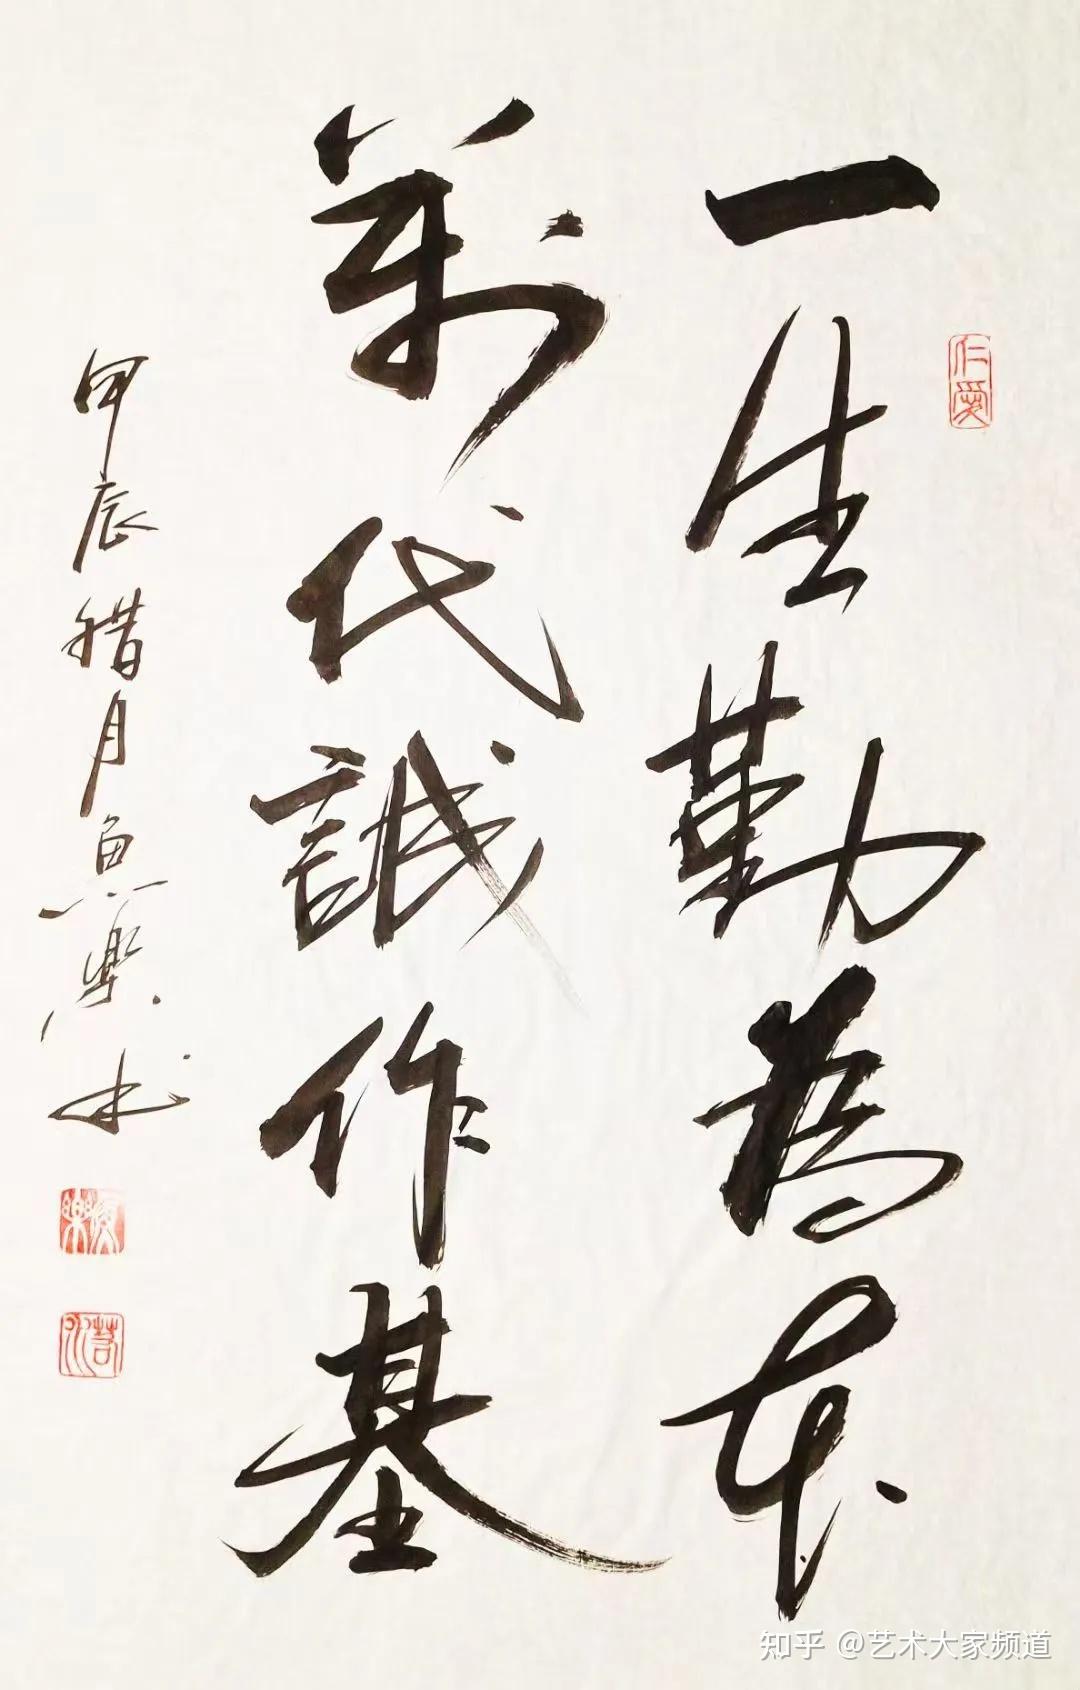 一生勤為本
萬代誠作基
甲辰腊月魚樂书
仁愛
知乎 @艺术大家频道